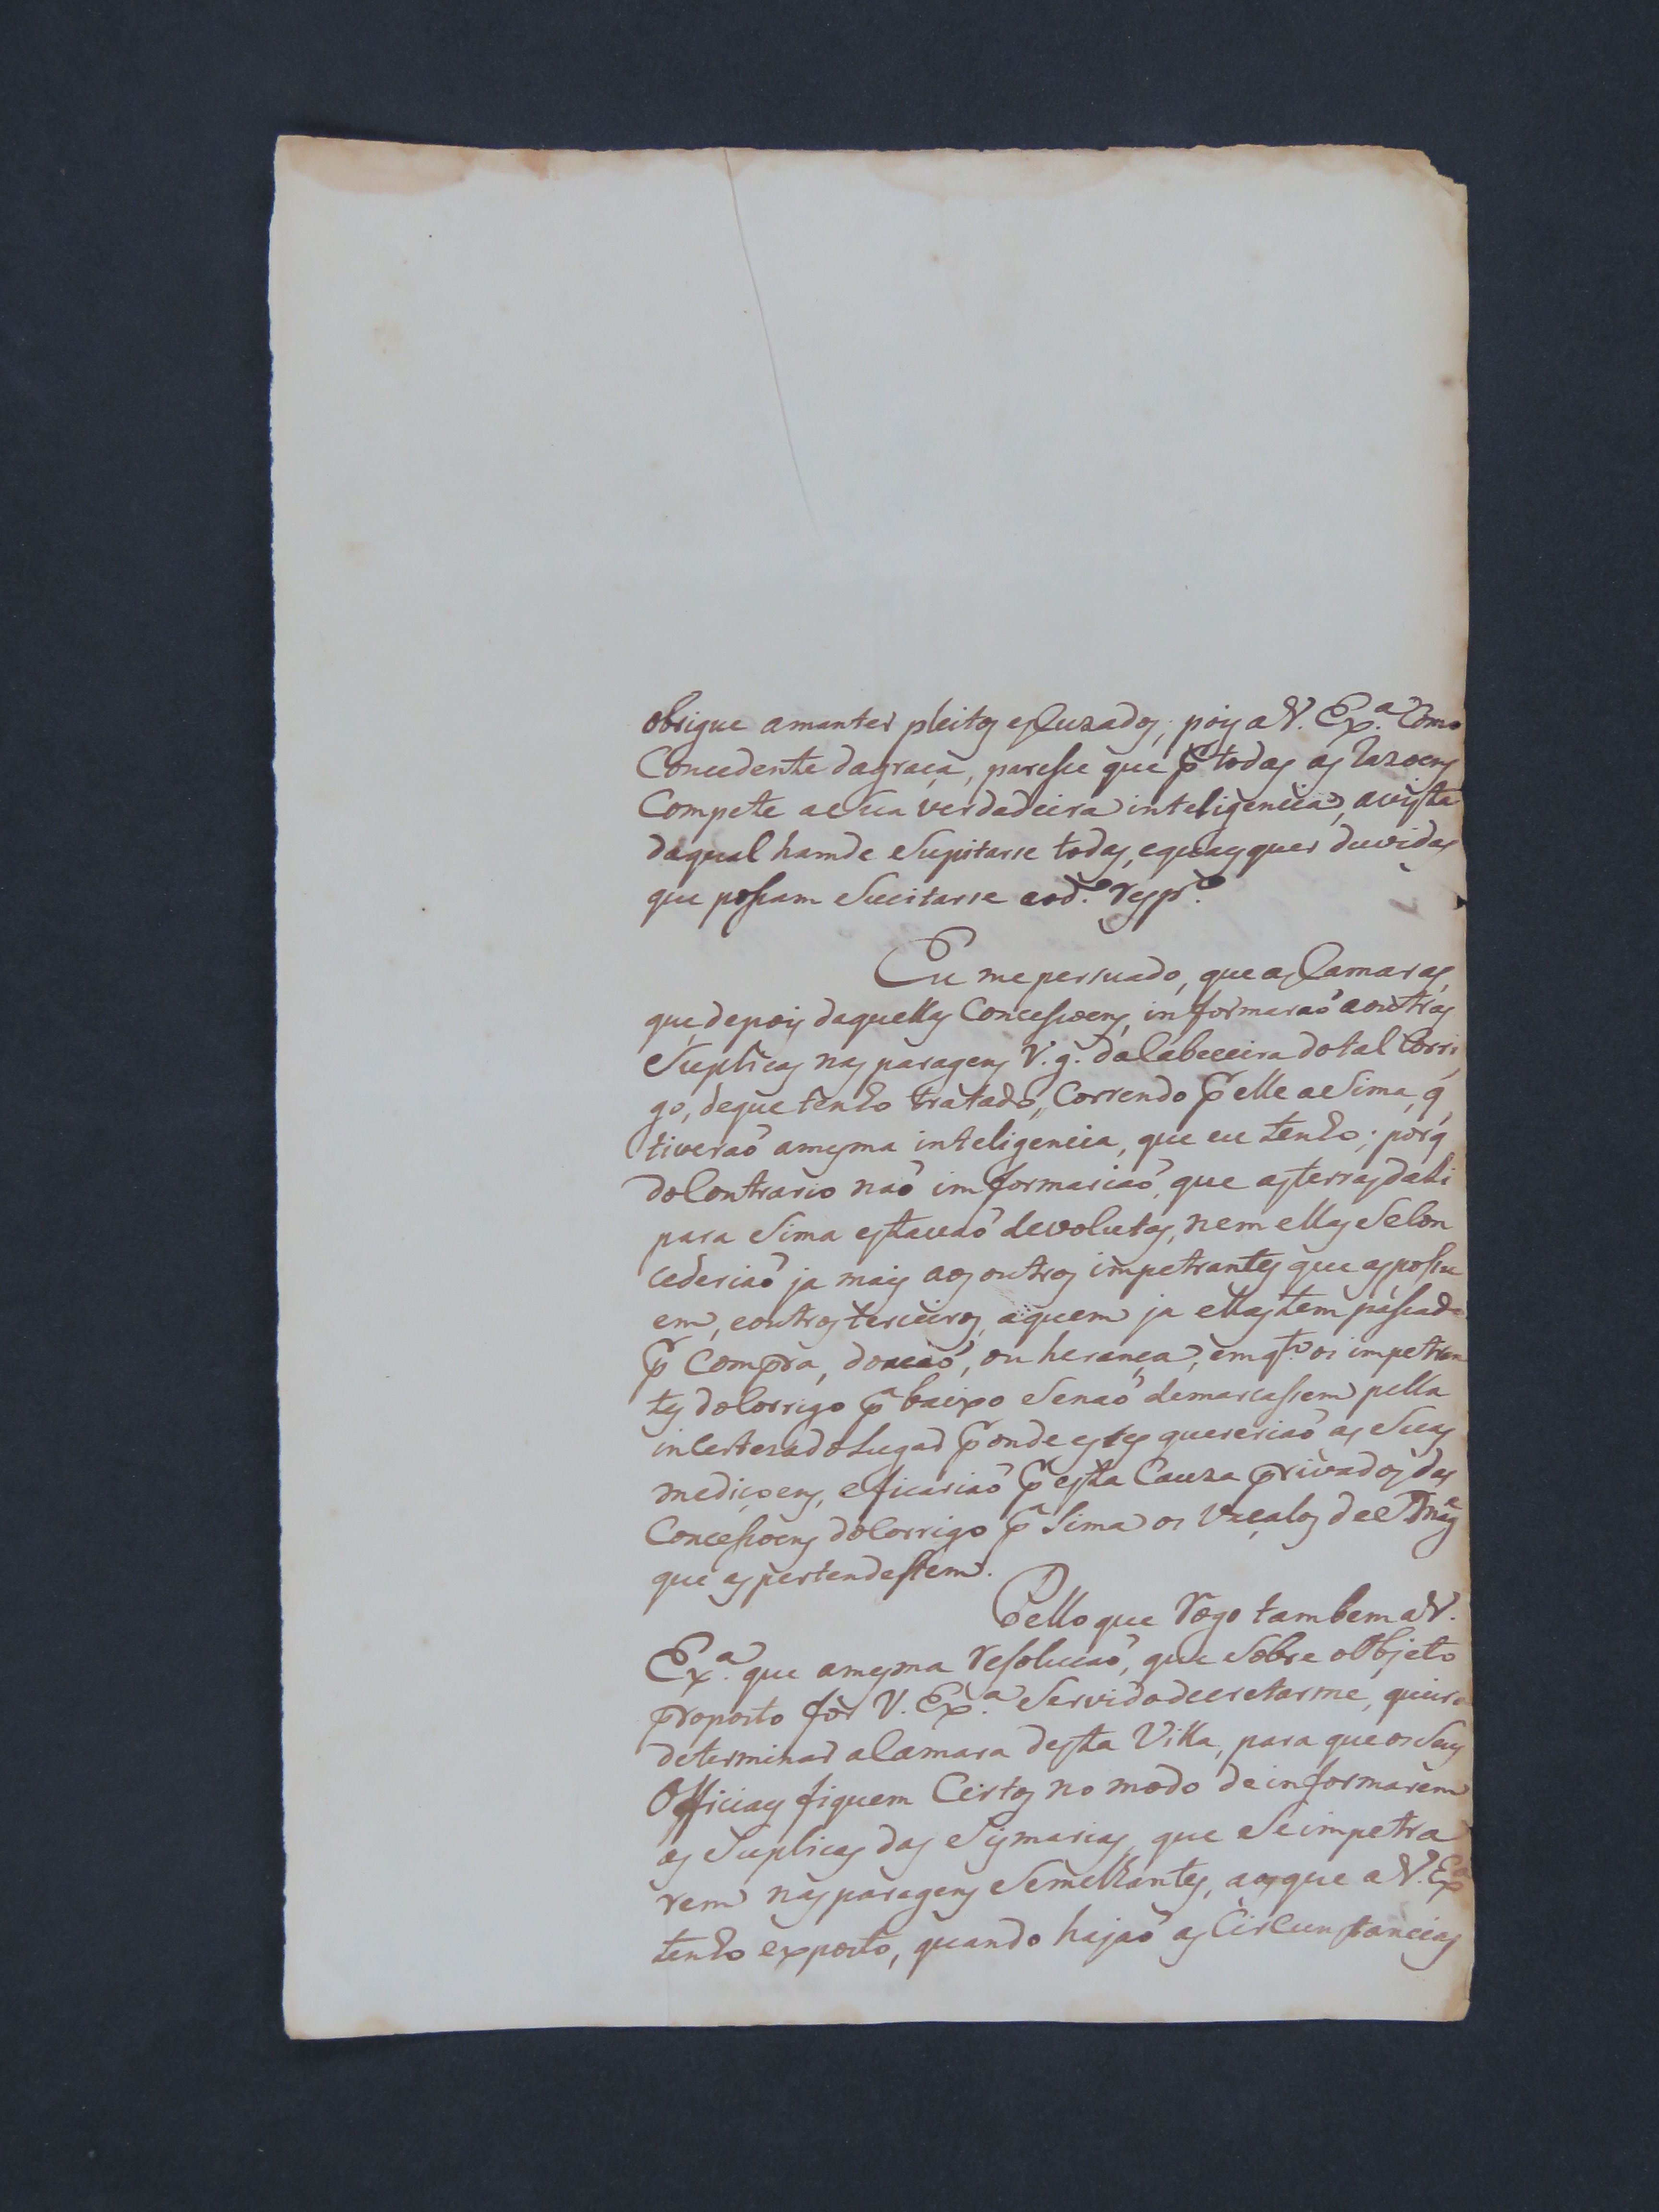 obrigue amanter pleitos escuzados, pois a V. Ex.ª Como
Concedente dagraça, paresse que p.r todas as razoens
Compete aSua verdadeira inteligencia, avista
daqual hamde Supitarse todas, equaesquer duvidas
que possam Sucitarse aod.º resp.º
Eu me persuado, que as Camaras,
que depois daquellas Concessoens, informaraõ aoutras
Suplicas nas paragens V.g. daCabeceira dotal Corri
go, deque tenho tratado, Correndo p.r elle aSima, q̃
tiveraõ amesma inteligencia, que eu tenho; porq̃
doContrario naõ imformariaõ, que asterras dahi
para Sima estavaõ devolutas, nem ellas SeCon
cederiaõ ja mais aos outros impetrantes que aspossu
em, eoutros terceiros, aquem ja ellas tem passado
p.r Compra, doacaõ, ou herança, emq.to os impetran
tes doCorrigo p.ª baixo Senaõ demarcassem pella
inCertezadoLugar p.r onde estes quereriaõ as Suas
mediçoens, eficariaõ p.r esta Cauza privados das
Concessoens doCorrigo p.ª Sima os Vaçalos deS Mag.e
que as pertendessem.
Pello que rogo tambem aV.
Ex.ª que amesma resolucaõ, que Sobre oObjeto
proposto for V. Ex.ª Servidodecretarme, queira
determinar aCamara desta Villa, para que os Seus
Officiaes fiquem Certos no modo deinformarem
as Suplicas das Sismarias, que Seimpetra
rem nas paragens Semelhantes, aosque a V. Ex.ª
tenho exposto, quando hajaõ as Circunstancias